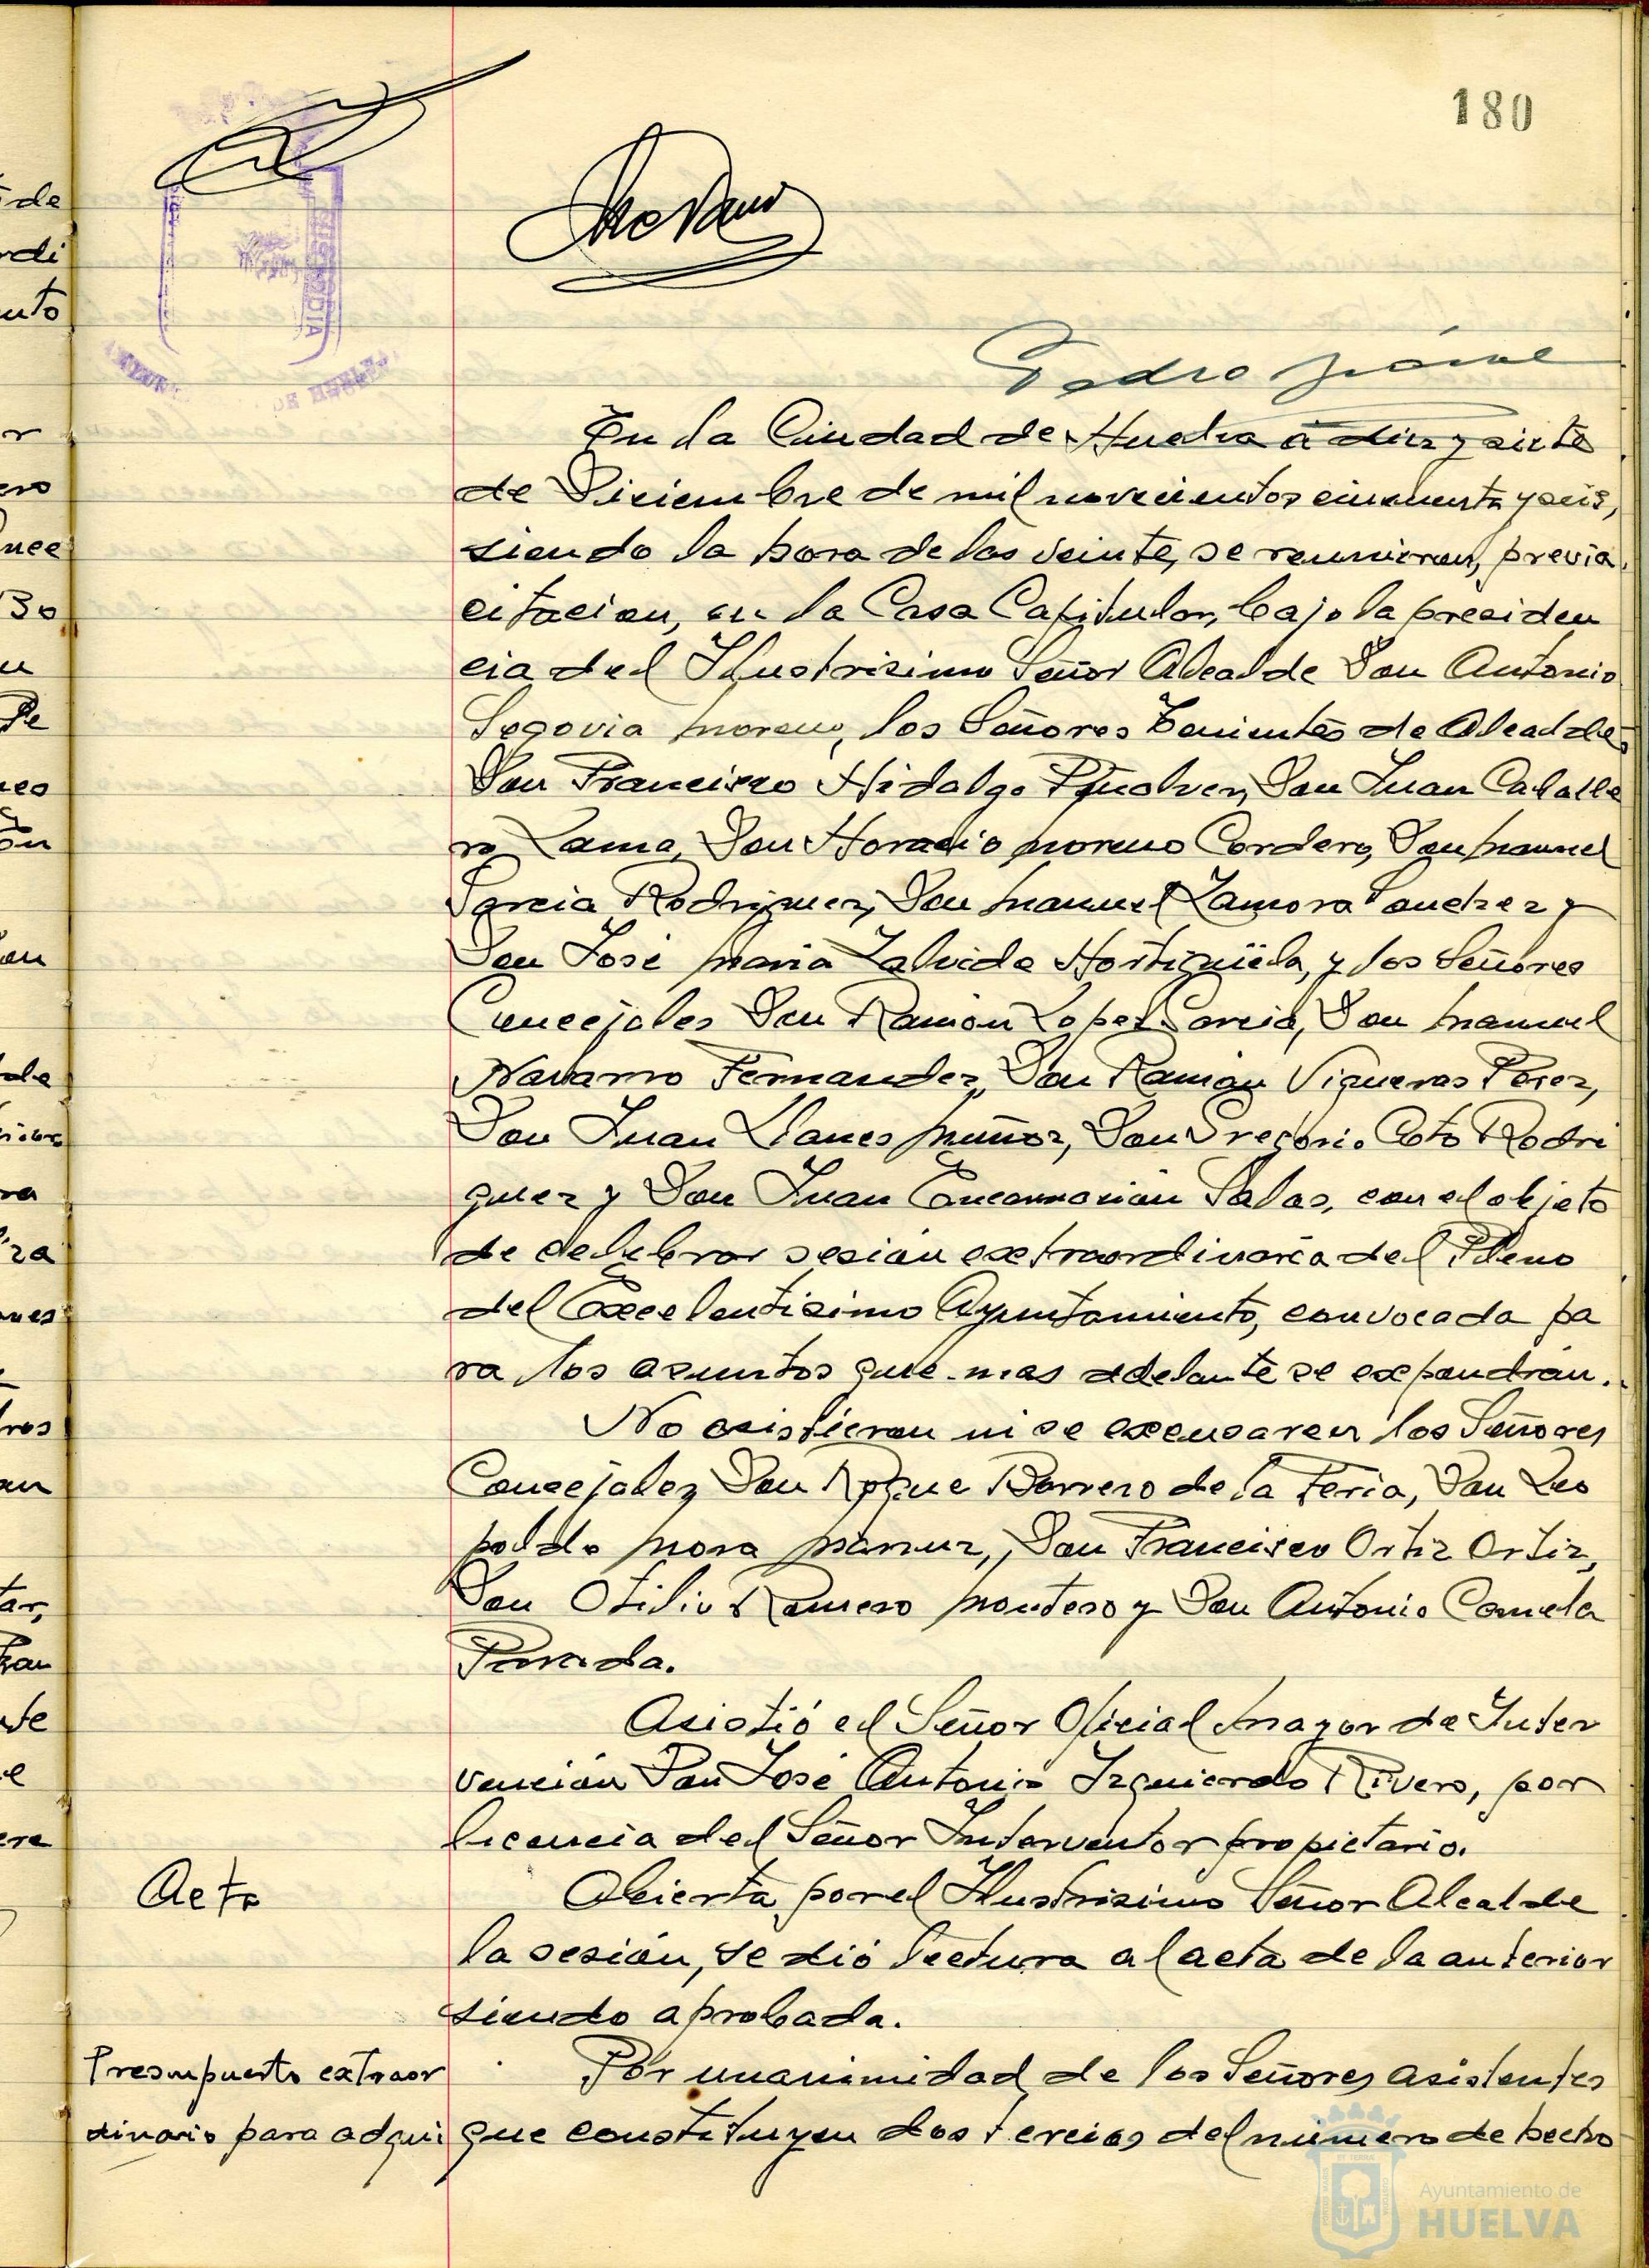 180
Pedro Jiménez
En la Ciudad de Huelva a diez y siete
de Diciembre de mil novecientos cincuenta y seis,
siendo la hora de las veinte, se reunieron, previa
citacion, en la Casa Capitular, bajo la presiden
cia del Ilustrisimo Señor Alcalde Don Antonio
Segovia Moreno, los Señores Tenientes de Alcalde,
Don Francisco Hidalgo Don Juan Caballe
ro Lama, Don Horacio Moreno Cordero, Don Manuel
Garcia Rodriguez, Don Manuel Zamora Sanchez y
Don José Maria Zalvide Hortigüela, y los Señores
Concejales Don Ramón Lopez Garcia, Don Manuel
Navarro Fernandez, Don Ramón Vigueras Pérez,
Don Juan Llanes Muñoz, Don Gregorio Coto Rodri
guez y Don Juan Encarnacion Salas, con el objeto
de celebrar sesión extraordinaria del Pleno
del Excelentisimo Ayuntamiento, convocada pa
ra los asuntos que mas adelante se expondrán.
No asistieron ni se excusaron los Señores
Concejales Don Roque Barrero de la Feria, Don Leo
poldo Mora Don Francisco Ortiz Ortiz,
Don Otilio Romero Montero y Don Antonio Camela
Parada.
Asistió el Señor Oficial Mayor de Inter
vención Don José Antonio Izquierdo Rivero, por
licencia del Señor Interventor propietario.
Acta
Abierta por el Ilustrisimo Señor Alcalde
la sesión, se dió lectura al acta de la anterior
siendo aprobada.
Presupuesto extraor
dinario para adqui
Por unanimidad de los Señores asistentes
que constituyen dos tercios del número de hecho
Ayuntamiento de
HUELVA